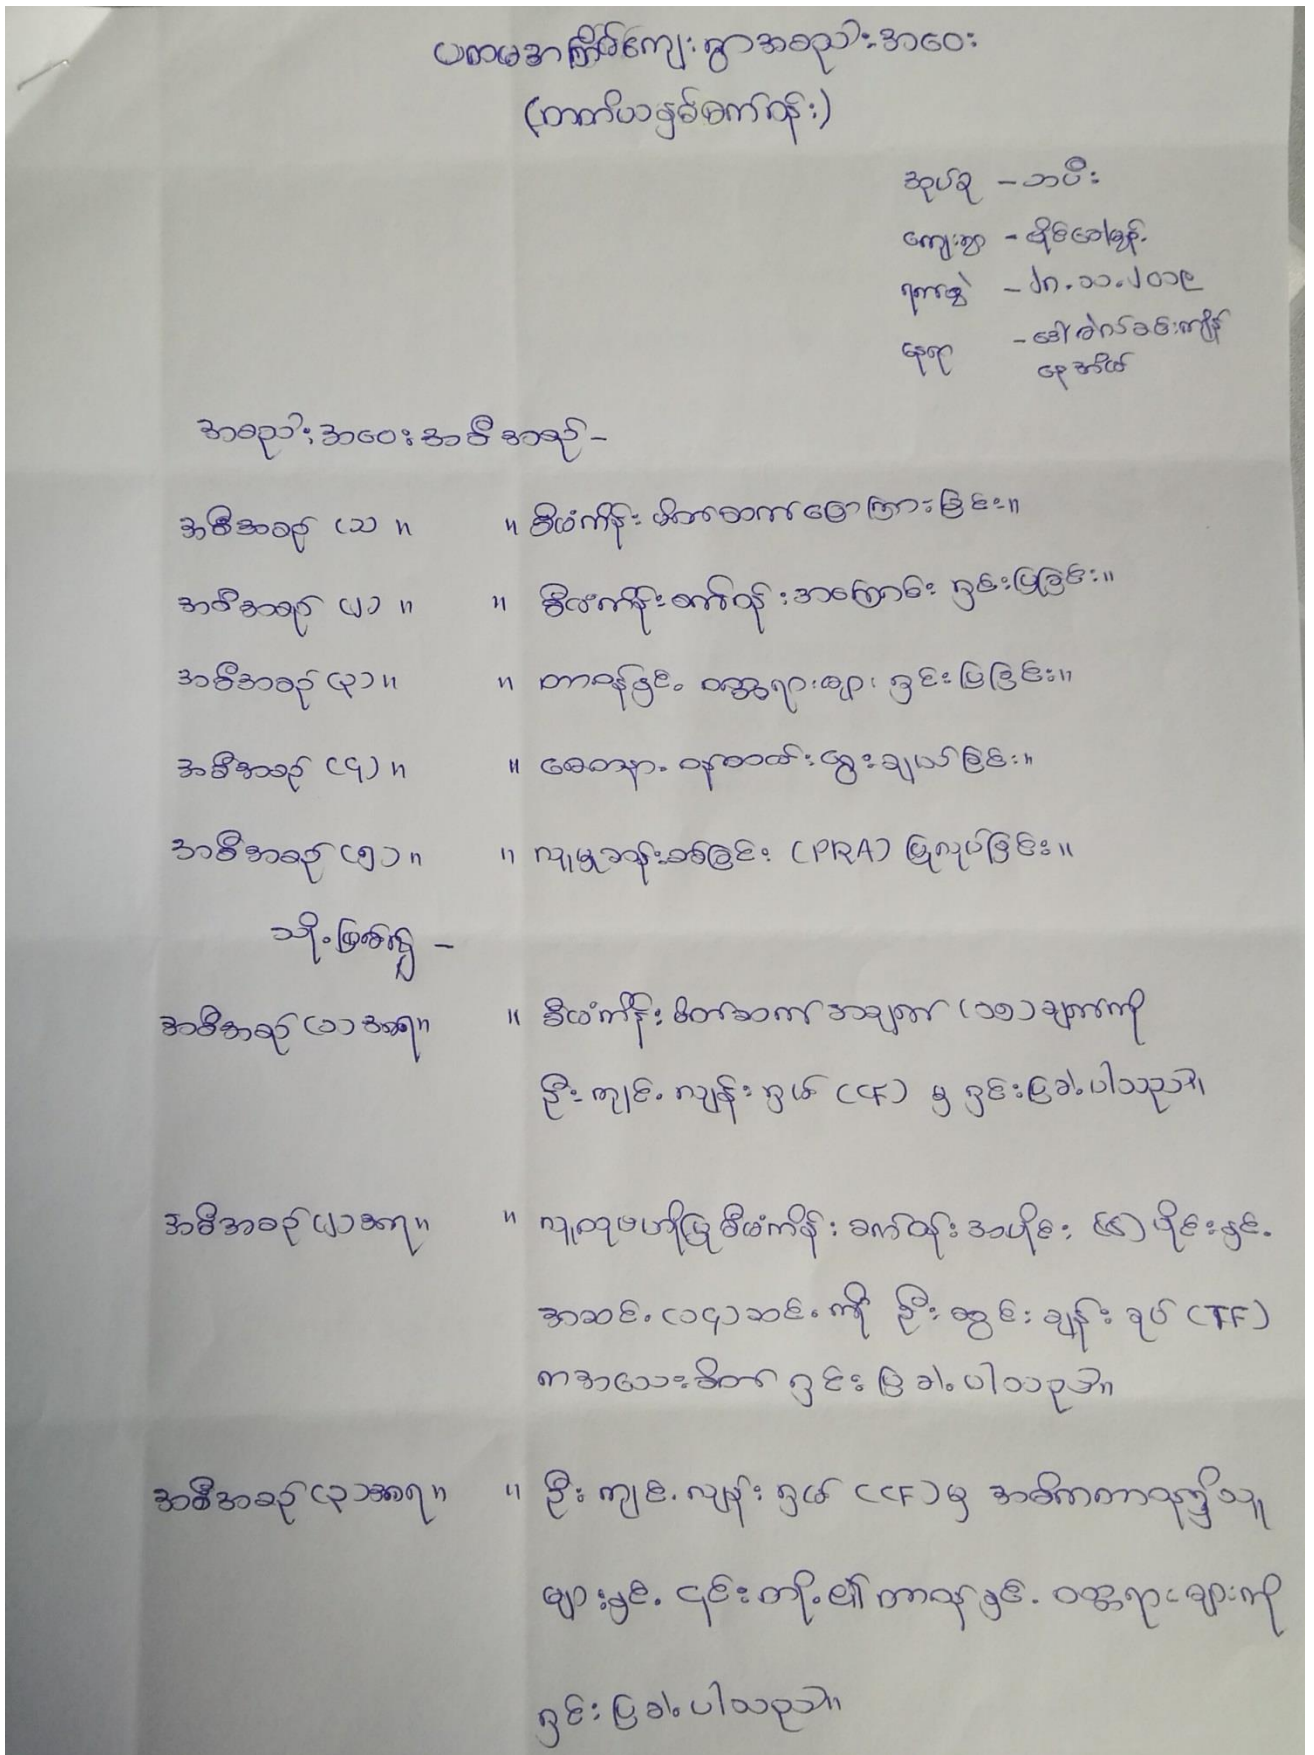 ပထမအကြိမ်ကျေးရွာအစည်းအဝေး
(တတိယနှစ်စက်ဝန်း)
အုပ်စု - ဘပီး
ကျေးရွာ -
ရက်စွဲ - ၂၈.၁၁.၂၀၁၉
နေရာ - ဒေါ်
နေအိမ်
အစည်းအဝေးအစီအစဉ် -
အစီအစဉ် (၁) ။ ။ စီမံကိန်း မိတ်ဆက်ပြောကြားခြင်း။
အစီအစဉ် (၂) ။ ။ စီမံကိန်းစက်ဝန်းအကြောင်း ရှင်းပြခြင်း။
အစီအစဉ် (၃) ။ ။ တာဝန်နှင့် ဝတ္တရားများ ရှင်းပြခြင်း။
အစီအစဉ် (၄) ။ ။ စေတနာ့ ဝန်ထမ်းရွေးချယ်ခြင်း။
အစီအစဉ် (၅) ။ ။ လူမှုဆန်းစစ်ခြင်း (PRA) ပြုလုပ်ခြင်း။
သို့ဖြစ်၍ -
အစီအစဉ် (၁) အရ။ ။ စီမံကိန်း မိတ်ဆက် အချက် (၁၅) ချက်ကို
ဦးကျင့်လျန်းရှမ် (CF) မှ ရှင်းပြခဲ့ပါသည်။
အစီအစဉ် (၂) အရ။ ။ လူထုဗဟိုပြုစီမံကိန်း စက်ဝန်းအပိုင်း (၄) ပိုင်းနှင့်
အဆင့် (၁၄) ဆင့်ကို ဦးထွင်းချန်းခုပ် (TF)
ကအသေးစိတ် ရှင်းပြခဲ့ပါသည်။
အစီအစဉ် (၃) အရ။ ။ ဦးကျင့်လျန်းရှမ် (CF) မှ အဓိကတာဝန်ရှိသူ
များနှင့် ၎င်းတို့၏ တာဝန်နှင့် ဝတ္တရားများကို
ရှင်းပြခဲ့ပါသည်။